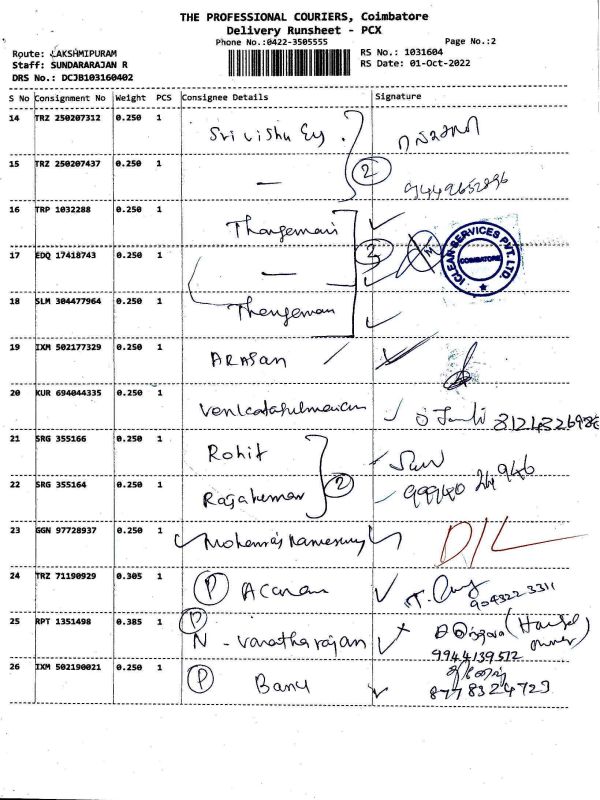 THE PROFESSIONAL COURIERS, Coimbatore
Delivery Runsheet - PCX
Phone No.:0422-3505555 Page No.:2
Route: LAKSHMIPURAM RS No.: 1031604
Staff: SUNDARARAJAN R RS Date: 01-Oct-2022
DRS No.: DCJB103160402
S No Consignment No Weight PCS Consignee Details Signature
14 TRZ 250207312 0.250 1 Sri Vishu
15 TRZ 250207437 0.250 1 — 2
16 TRP 1032288 0.250 1
17 EDQ 17418743 0.250 1 —
ICLEAN SERVICES PVT. LTD.
COIMBATORE
18 SLM 304477964 0.250 1
19 IXM 502177329 0.250 1 ARASAN
20 KUR 694044335 0.250 1
21 SRG 355166 0.250 1 Rohit
22 SRG 355164 0.250 1 Rajakumar 2
23 GGN 97728937 0.250 1 D/L
24 TRZ 71190929 0.305 1 P
904322 3311
25 RPT 1351498 0.385 1 P N - Varatharajan (House owner)
9944139512
26 IXM 502190021 0.250 1 P Banu
8778324723